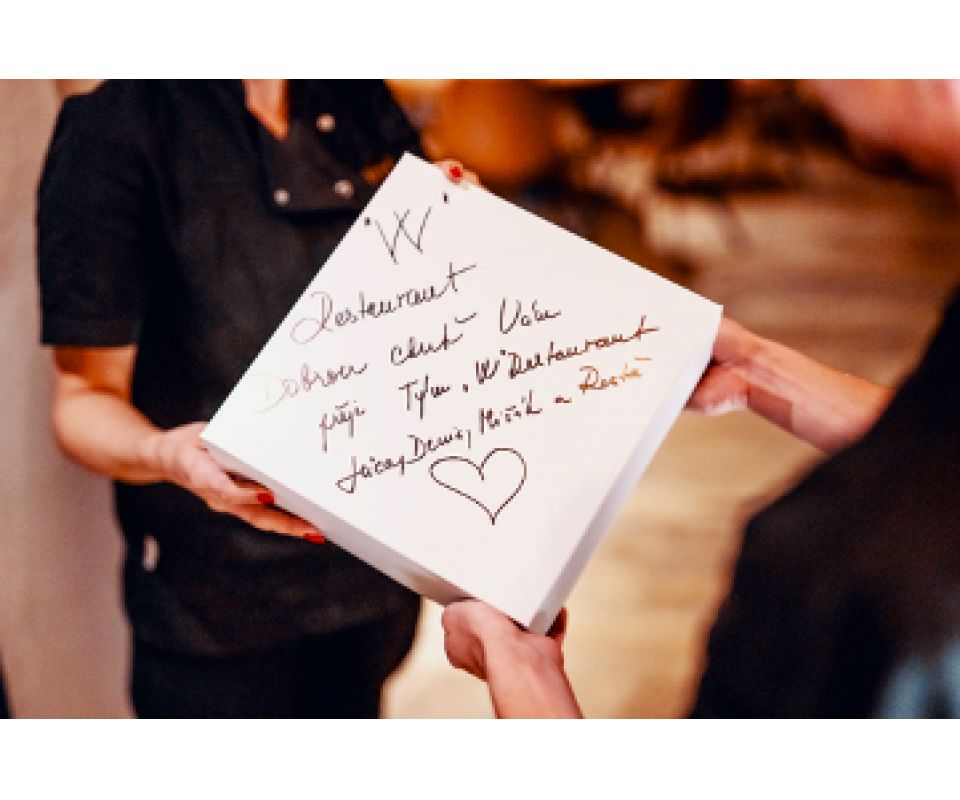 "W"
Restaurant
Dobrou chuť Vám
přeje Tým "W" Restaurant
Denis, Mišák a